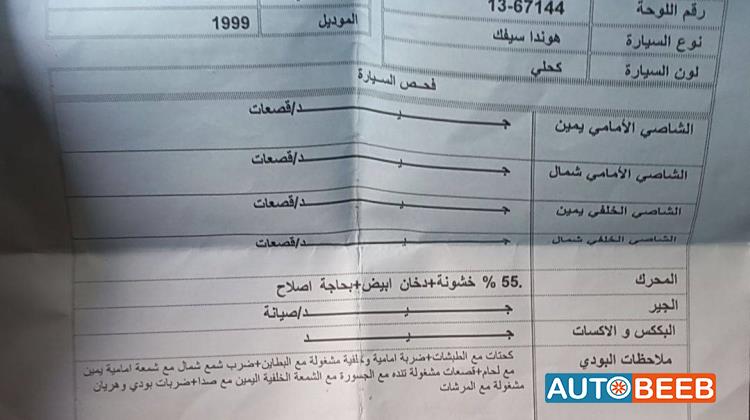 رقم اللوحة 13-67144
الموديل 1999
نوع السيارة هوندا سيفك
لون السيارة كحلي
فحص السيارة
الشاصي الأمامي يمين جـــيـــد/قصعات
الشاصي الأمامي شمال جـــيـــد/قصعات
الشاصي الخلفي يمين جـــيـــد/قصعات
الشاصي الخلفي شمال جـــيـــد/قصعات
المحرك 55. % خشونة+دخان ابيض+بحاجة اصلاح
الجير جـــيـــد/صيانة
البكس و الاكسات جـــيـــد
ملاحظات البودي كحتات مع الطبشات+ضربة امامية وخلفية مشغولة مع البطاين+ضرب شمع شمال مع شمعة امامية يمين
مع لحام+قصعات مشغولة تنده مع الجسورة مع الشمعة الخلفية اليمين مع صدا+ضربات بودي وهريان
مشغولة مع المرشات
AUTOBEEB